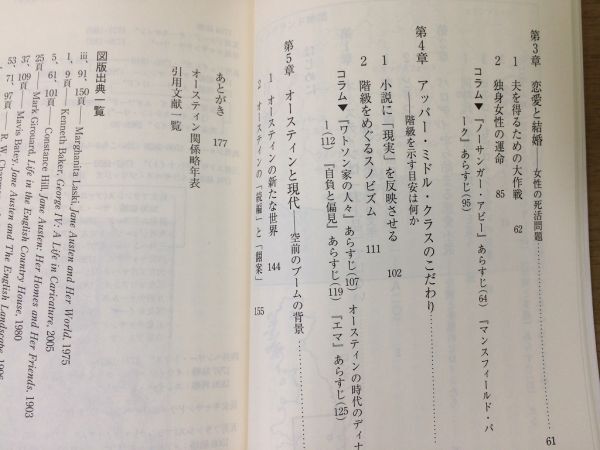 第3章 恋愛と結婚──女性の死活問題 61
1 夫を得るための大作戦 62
2 独身女性の運命 85
コラム▼『ノーサンガー・アビー』あらすじ(64) 『マンスフィールド・パ
ーク』あらすじ(95)
第4章 アッパー・ミドル・クラスのこだわり
──階級を示す目安は何か
1 小説に「現実」を反映させる 102
2 階級をめぐるスノビズム 111
コラム▼『ワトソン家の人々』あらすじ(107) オースティンの時代のディナ
ー(112) 『自負と偏見』あらすじ(119) 『エマ』あらすじ(125)
第5章 オースティンと現代──空前のブームの背景
1 オースティンの新たな世界 144
2 オースティンの「続編」と「翻案」 155
あとがき 177
オースティン関係略年表
引用文献一覧
図版出典一覧
iii, 91, 150頁──Marghanita Laski, Jane Austen and Her World. 1975
1, 9頁──Kenneth Baker, George IV: A Life in Caricature, 2005
5, 61, 101頁──Constance Hill, Jane Austen: Her Homes and Her Friends. 1903
25頁──Mark Girouard, Life in the English Country House, 1980
37, 109頁──Mavis Batey, Jane Austen and The English Landscape,
53, 71, 97頁──R. W.